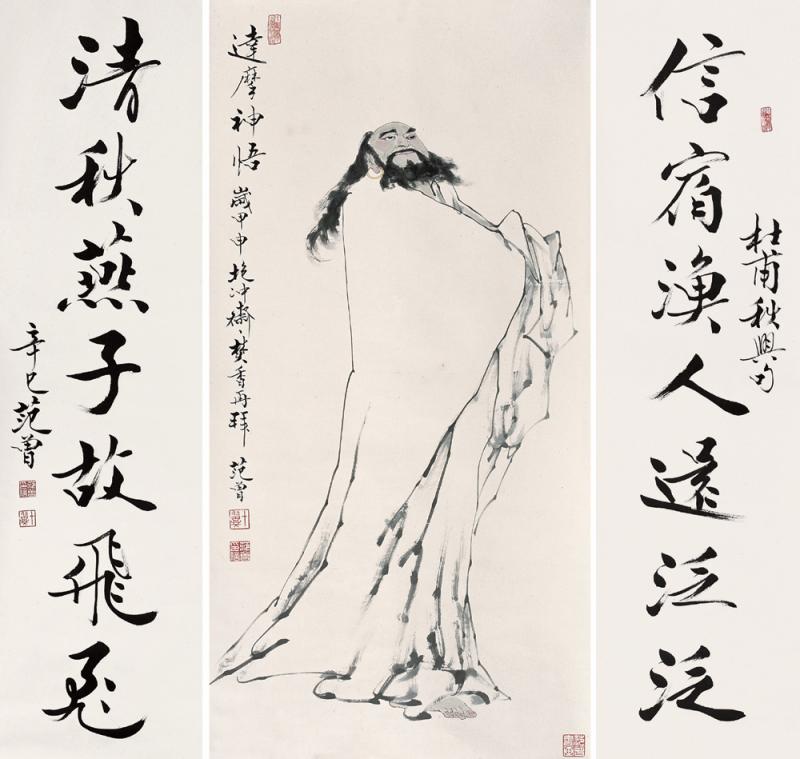 杜甫秋興句
信宿漁人還泛泛
達摩神悟 歲甲申抱冲齋焚香再拜 范曾
清秋燕子故飛飛
辛巳 范曾